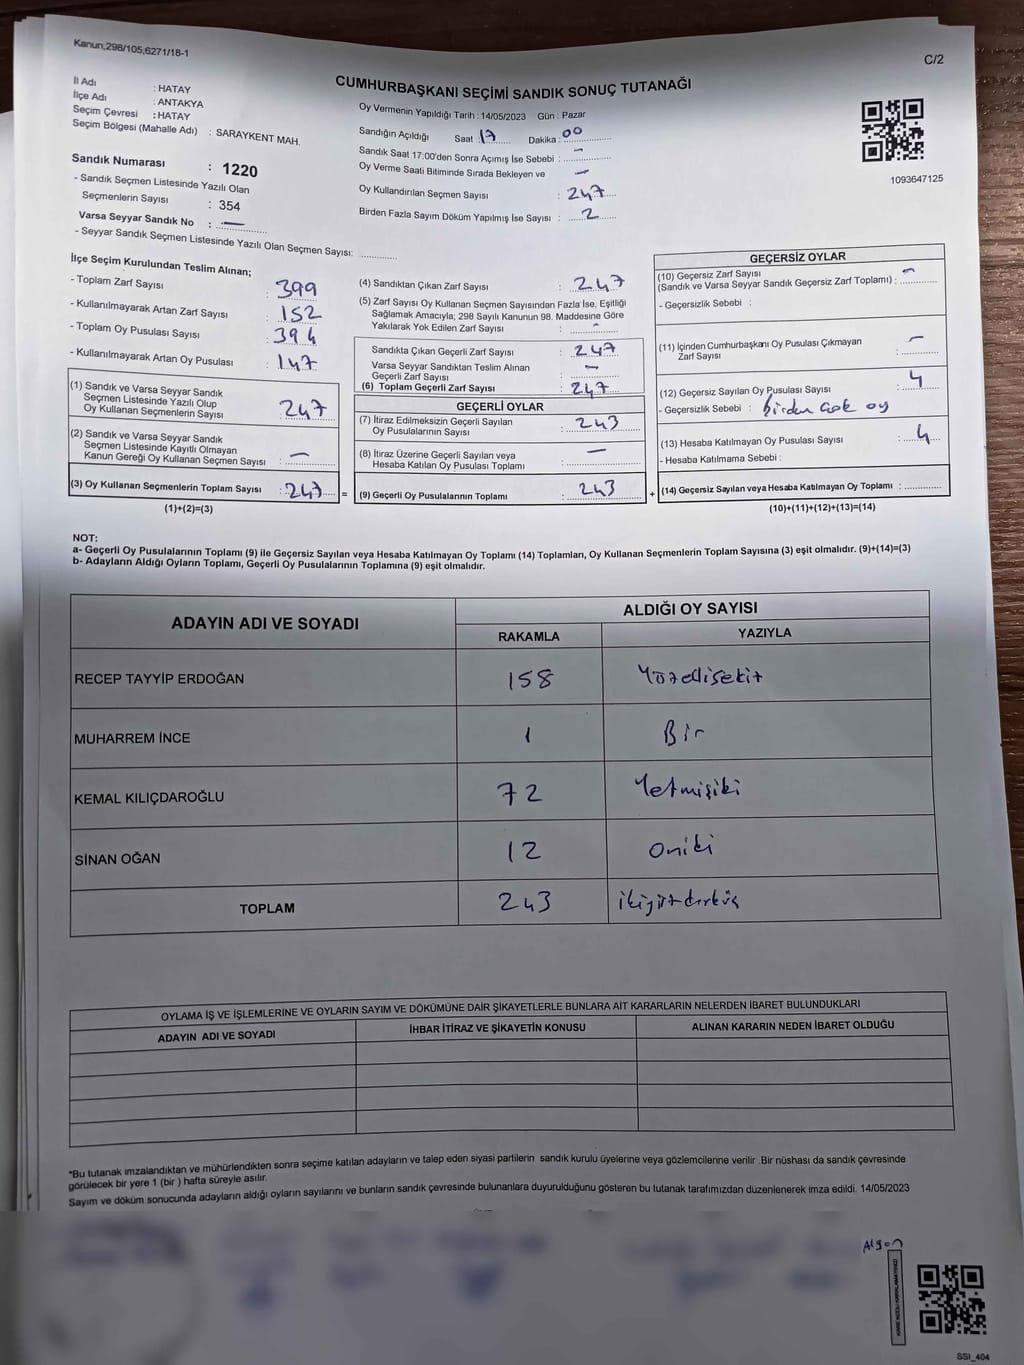 Kanun;298/105;6271/18-1
C/2
CUMHURBAŞKANI SEÇİMİ SANDIK SONUÇ TUTANAĞI
İl Adı : HATAY
İlçe Adı : ANTAKYA
Seçim Çevresi : HATAY
Seçim Bölgesi (Mahalle Adı) : SARAYKENT MAH.
Sandık Numarası : 1220
- Sandık Seçmen Listesinde Yazılı Olan
Seçmenlerin Sayısı : 354
Varsa Seyyar Sandık No : —
- Seyyar Sandık Seçmen Listesinde Yazılı Olan Seçmen Sayısı:
Oy Vermenin Yapıldığı Tarih : 14/05/2023 Gün : Pazar
Sandığın Açıldığı Saat : 17 Dakika : 00
Sandık Saat 17:00'den Sonra Açımış İse Sebebi : —
Oy Verme Saati Bitiminde Sırada Bekleyen ve —
Oy Kullandırılan Seçmen Sayısı : 247
Birden Fazla Sayım Döküm Yapılmış İse Sayısı : 2
1093647125
İlçe Seçim Kurulundan Teslim Alınan;
- Toplam Zarf Sayısı : 399
- Kullanılmayarak Artan Zarf Sayısı : 152
- Toplam Oy Pusulası Sayısı : 394
- Kullanılmayarak Artan Oy Pusulası : 147
(1) Sandık ve Varsa Seyyar Sandık
Seçmen Listesinde Yazılı Olup
Oy Kullanan Seçmenlerin Sayısı : 247
(2) Sandık ve Varsa Seyyar Sandık
Seçmen Listesinde Kayıtlı Olmayan
Kanun Gereği Oy Kullanan Seçmen Sayısı : —
(3) Oy Kullanan Seçmenlerin Toplam Sayısı : 247 =
(1)+(2)=(3)
(4) Sandıktan Çıkan Zarf Sayısı : 247
(5) Zarf Sayısı Oy Kullanan Seçmen Sayısından Fazla İse, Eşitliği
Sağlamak Amacıyla; 298 Sayılı Kanunun 98. Maddesine Göre
Yakılarak Yok Edilen Zarf Sayısı : -
Sandıkta Çıkan Geçerli Zarf Sayısı : 247
Varsa Seyyar Sandıktan Teslim Alınan —
Geçerli Zarf Sayısı :
(6) Toplam Geçerli Zarf Sayısı : 247
GEÇERLİ OYLAR
(7) İtiraz Edilmeksizin Geçerli Sayılan
Oy Pusulalarının Sayısı : 243
(8) İtiraz Üzerine Geçerli Sayılan veya
Hesaba Katılan Oy Pusulası Toplamı : —
(9) Geçerli Oy Pusulalarının Toplamı : 243 +
GEÇERSİZ OYLAR
(10) Geçersiz Zarf Sayısı
(Sandık ve Varsa Seyyar Sandık Geçersiz Zarf Toplamı) : —
- Geçersizlik Sebebi :
(11) İçinden Cumhurbaşkanı Oy Pusulası Çıkmayan
Zarf Sayısı : —
(12) Geçersiz Sayılan Oy Pusulası Sayısı : 4
- Geçersizlik Sebebi : birden çok oy
(13) Hesaba Katılmayan Oy Pusulası Sayısı : 4
- Hesaba Katılmama Sebebi :
(14) Geçersiz Sayılan veya Hesaba Katılmayan Oy Toplamı :
(10)+(11)+(12)+(13)=(14)
NOT:
a- Geçerli Oy Pusulalarının Toplamı (9) ile Geçersiz Sayılan veya Hesaba Katılmayan Oy Toplamı (14) Toplamları, Oy Kullanan Seçmenlerin Toplam Sayısına (3) eşit olmalıdır. (9)+(14)=(3)
b- Adayların Aldığı Oyların Toplamı, Geçerli Oy Pusulalarının Toplamına (9) eşit olmalıdır.
ADAYIN ADI VE SOYADI ALDIĞI OY SAYISI
RAKAMLA YAZIYLA
RECEP TAYYİP ERDOĞAN 158 Yüzellisekiz
MUHARREM İNCE 1 Bir
KEMAL KILIÇDAROĞLU 72 Yetmişiki
SİNAN OĞAN 12 Oniki
TOPLAM 243 ikiyüzkırküç
OYLAMA İŞ VE İŞLEMLERİNE VE OYLARIN SAYIM VE DÖKÜMÜNE DAİR ŞİKAYETLERLE BUNLARA AİT KARARLARIN NELERDEN İBARET BULUNDUKLARI
ADAYIN ADI VE SOYADI İHBAR İTİRAZ VE ŞİKAYETİN KONUSU ALINAN KARARIN NEDEN İBARET OLDUĞU
*Bu tutanak imzalandıktan ve mühürlendikten sonra seçime katılan adayların ve talep eden siyasi partilerin sandık kurulu üyelerine veya gözlemcilerine verilir .Bir nüshası da sandık çevresinde
görülecek bir yere 1 (bir ) hafta süreyle asılır.
Sayım ve döküm sonucunda adayların aldığı oyların sayılarını ve bunların sandık çevresinde bulunanlara duyurulduğunu gösteren bu tutanak tarafımızdan düzenlenerek imza edildi. 14/05/2023
SSI_404